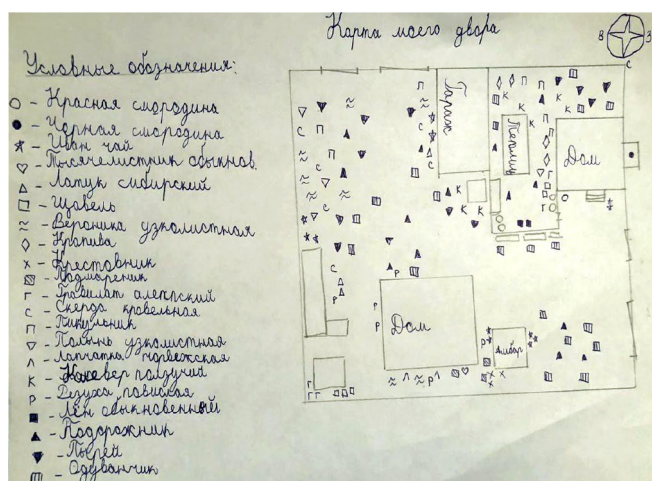 Карта моего двора
В З
С
Условные обозначения:
- Красная смородина
- Чёрная смородина
- Иван чай
- Тысячелистник обыкнов.
- Латук сибирский
- Щавель
- Вероника узколистная
- Крапива
- Крестовник
- Подмареник
- Гравилат алеппский
- Скерда кровельная
- Пикульник
- Полынь узколистная
- Лапчатка норвежская
- Клевер ползучий
- Резуха повислая
- Лён обыкновенный
- Подорожник
- Пырей
- Одуванчик
Гараж
Теплица
Дом
Дом
Амбар